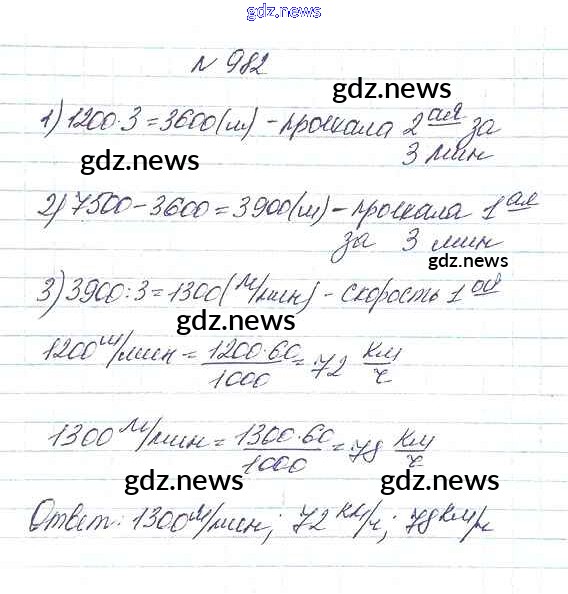 gdz.news
N 982
gdz.news
1) 1200·3=3600(м) - проехала 2ая за
gdz.news
3 мин
2) 7500-3600=3900(м) - проехала 1ая
за 3 мин
gdz.news
3) 3900:3=1300(м/мин) - скорость 1ой
gdz.news
1200м/мин = 1200·60/1000 = 72 км/ч
1300м/мин = 1300·60/1000 = 78 км/ч
gdz.news gdz.news
Ответ: 1300м/мин; 72км/ч; 78км/ч